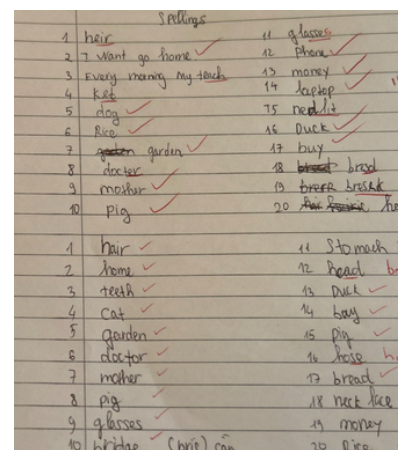 Spellings
1 heir
2 I want go home.
3 Every morning my teach
4 Ket
5 dog
6 Rice
7 garden
8 docter
9 mother
10 pig
11 glasses
12 Phone
13 money
14 laptop
15 neclit
16 Duck
17 buy
18 bred
19 bresk
20
1 hair
2 home
3 teeth
4 cat
5 garden
6 doctor
7 mother
8 pig
9 glasses
10 bridge (bris)
11 Stomach
12 head
13 Duck
14 bay
15 pig
16 hose
17 bread
18 neck lace
19 money
20 Rice